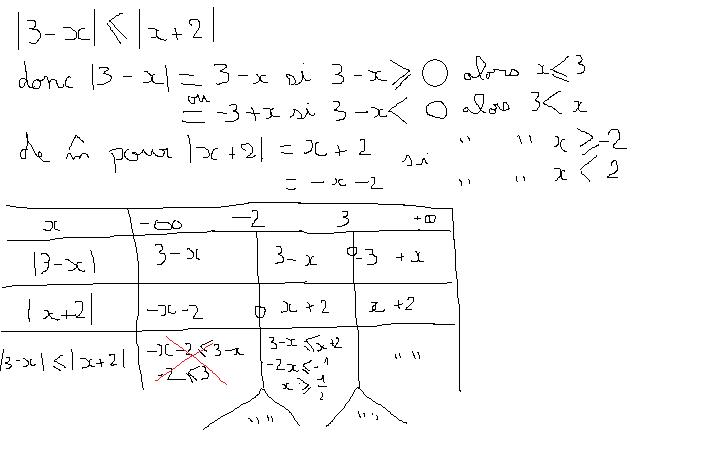 |3-x| ⩽ |x+2|
donc |3-x| = 3-x si 3-x ⩾ 0 alors x ⩽ 3
ou
= -3+x si 3-x < 0 alors 3 < x
de m̂ pour |x+2| = x+2 si " " x ⩾ -2
= -x-2 " " x < 2
x -∞ -2 3 +∞
|3-x| 3-x 3-x 0 -3+x
|x+2| -x-2 0 x+2 x+2
|3-x| ⩽ |x+2| -x-2 ⩽ 3-x 3-x ⩽ x+2 " "
-2 ⩽ 3 -2x ⩽ -1
x ⩾ 1/2
" " " "